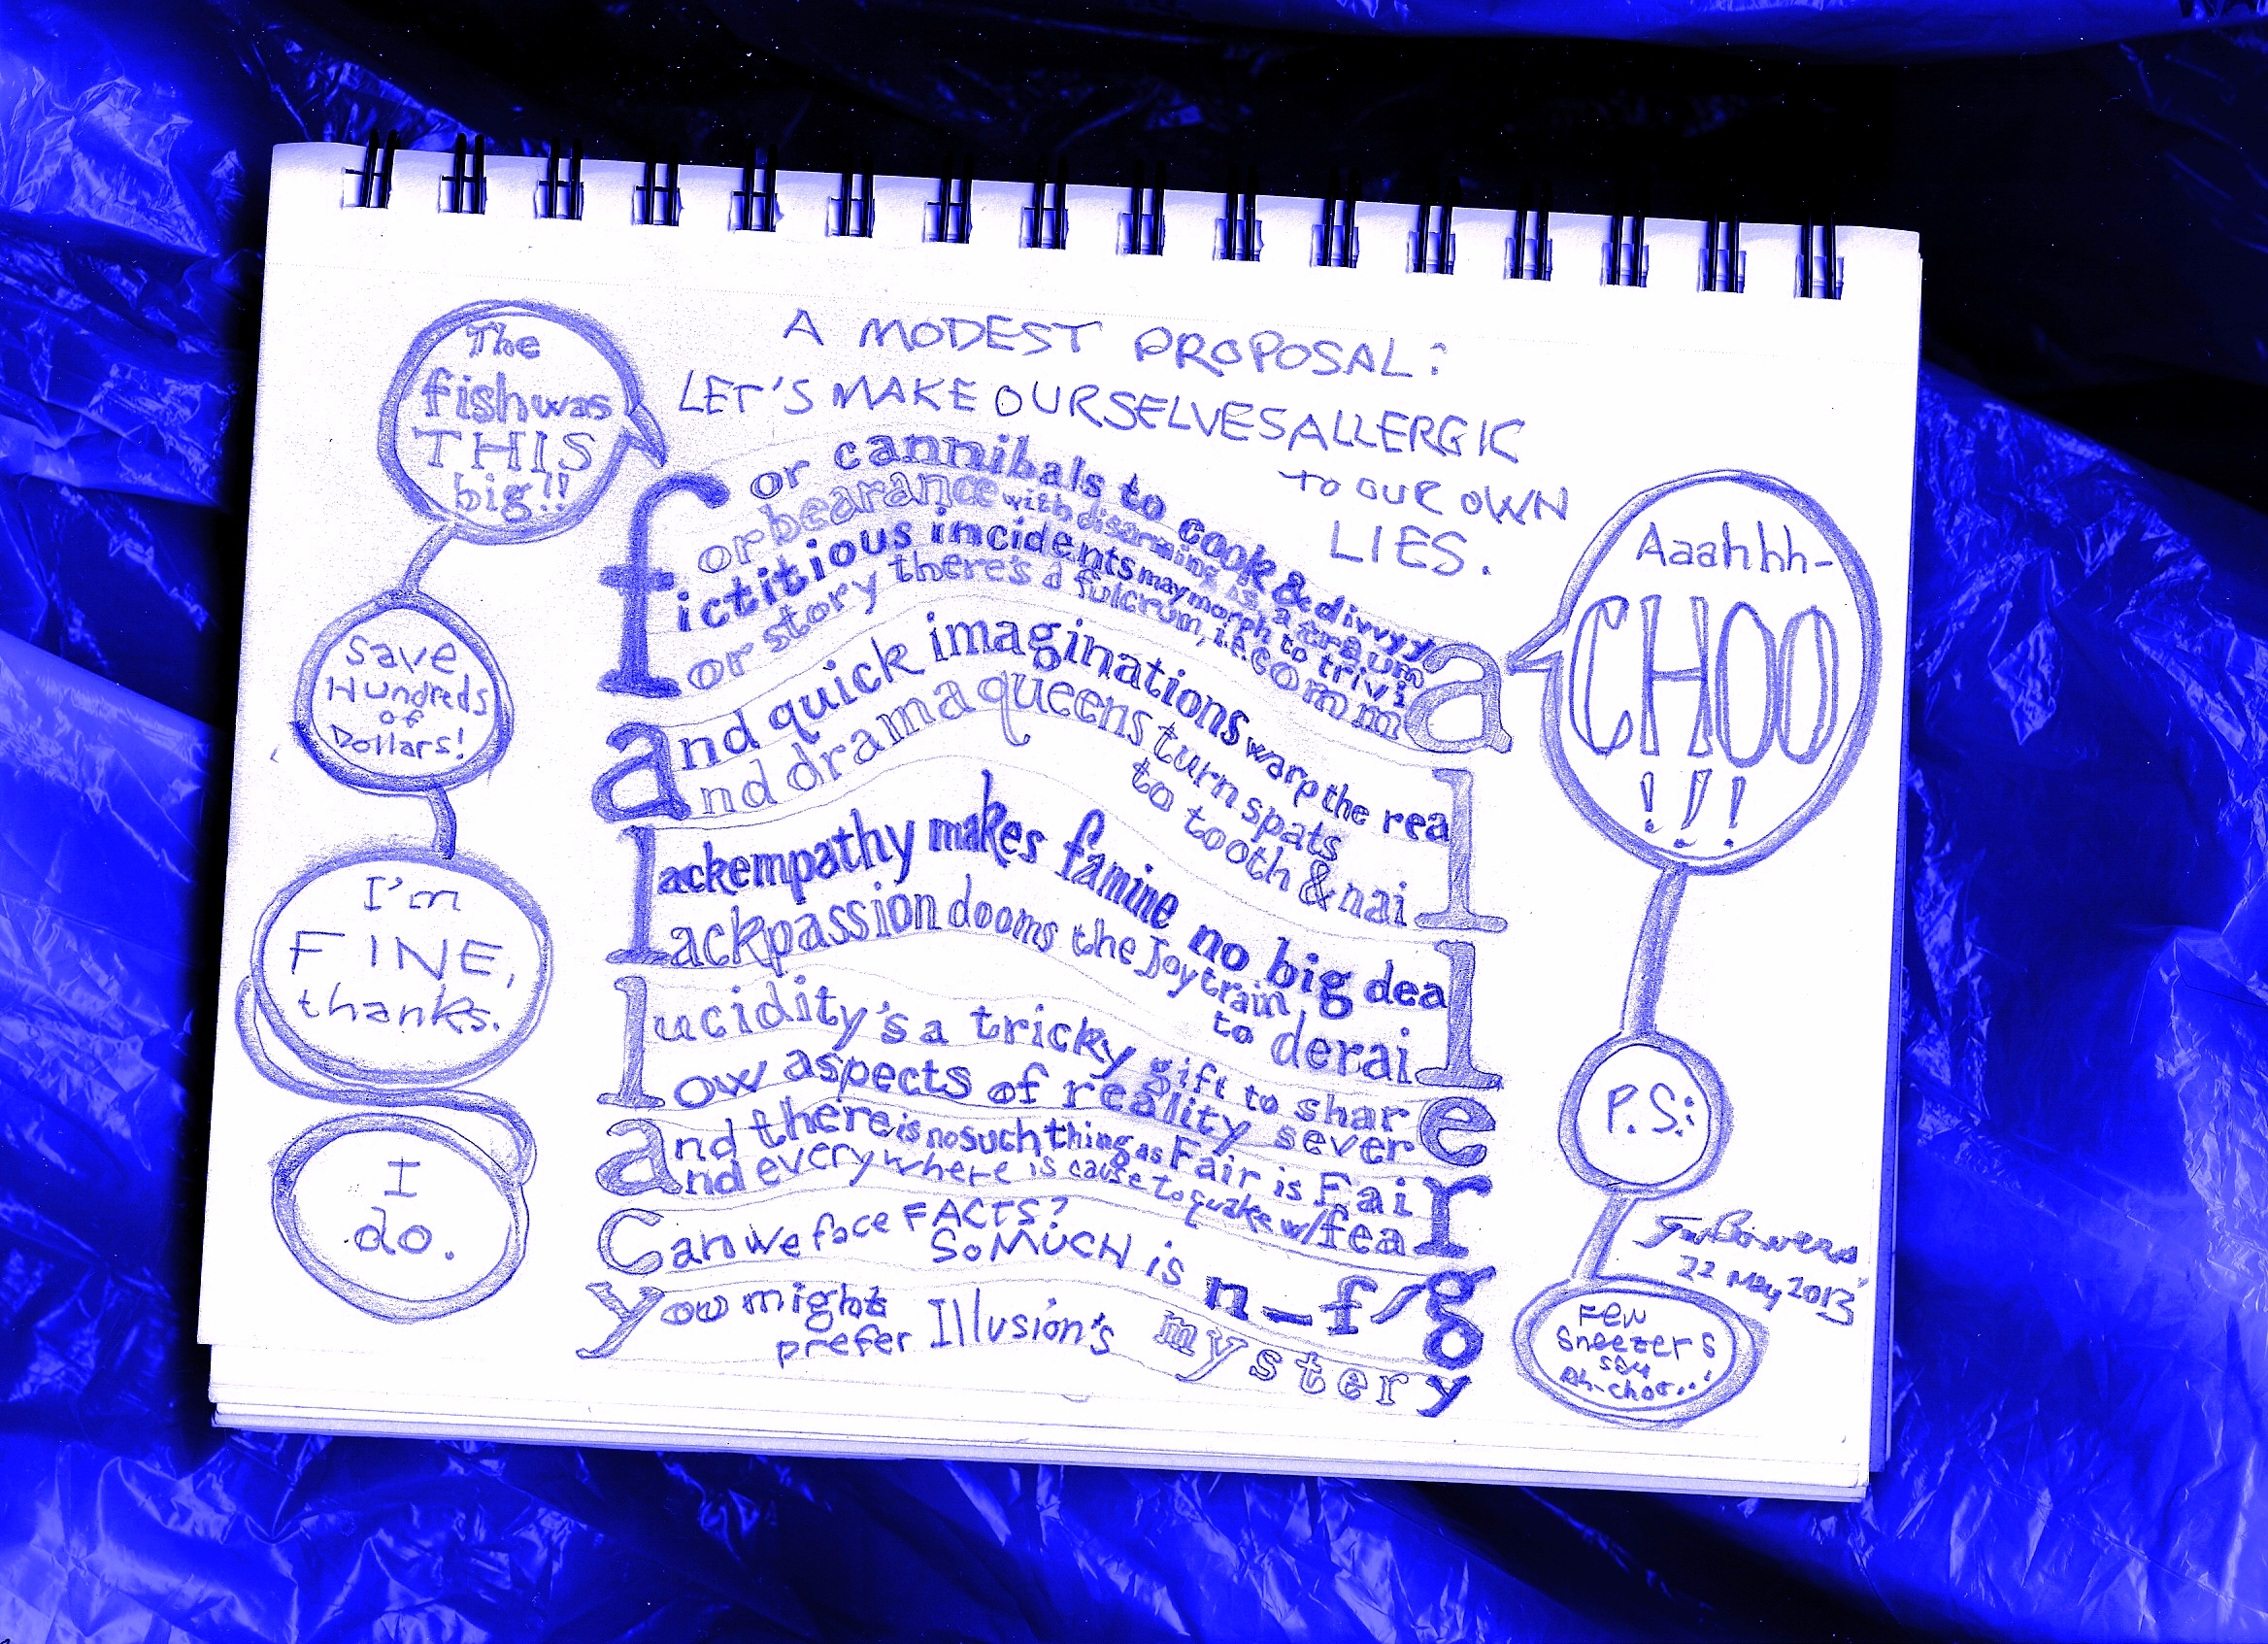 A MODEST PROPOSAL:
LET'S MAKE OURSELVES ALLERGIC
TO OUR OWN
LIES.
The
fish was
THIS
big!!
Save
Hundreds
of
Dollars!
I'm
FINE,
thanks.
I
do.
for cannibals to cook & divvyy
forbearance with disarming is, a trauma
fictitious incidents may morph to trivi
for story there's a fulcrum, i.e. comma
and quick imaginations warp the real
and drama queens turn spats
to tooth & nail
lackempathy makes famine no big deal
lackpassion dooms the Joytrain
to derail
lucidity's a tricky gift to share
low aspects of reality severe
and there is no such thing as Fair is Fair
and everywhere is cause to quake w/fear
Can we face FACTS?
SO MUCH is n_f/g
you might
prefer Illusion's mystery
Aaahhh-
CHOO
!!!
P.S.:
22 May 2013
Few
Sneezers
say
Ah-choo...!